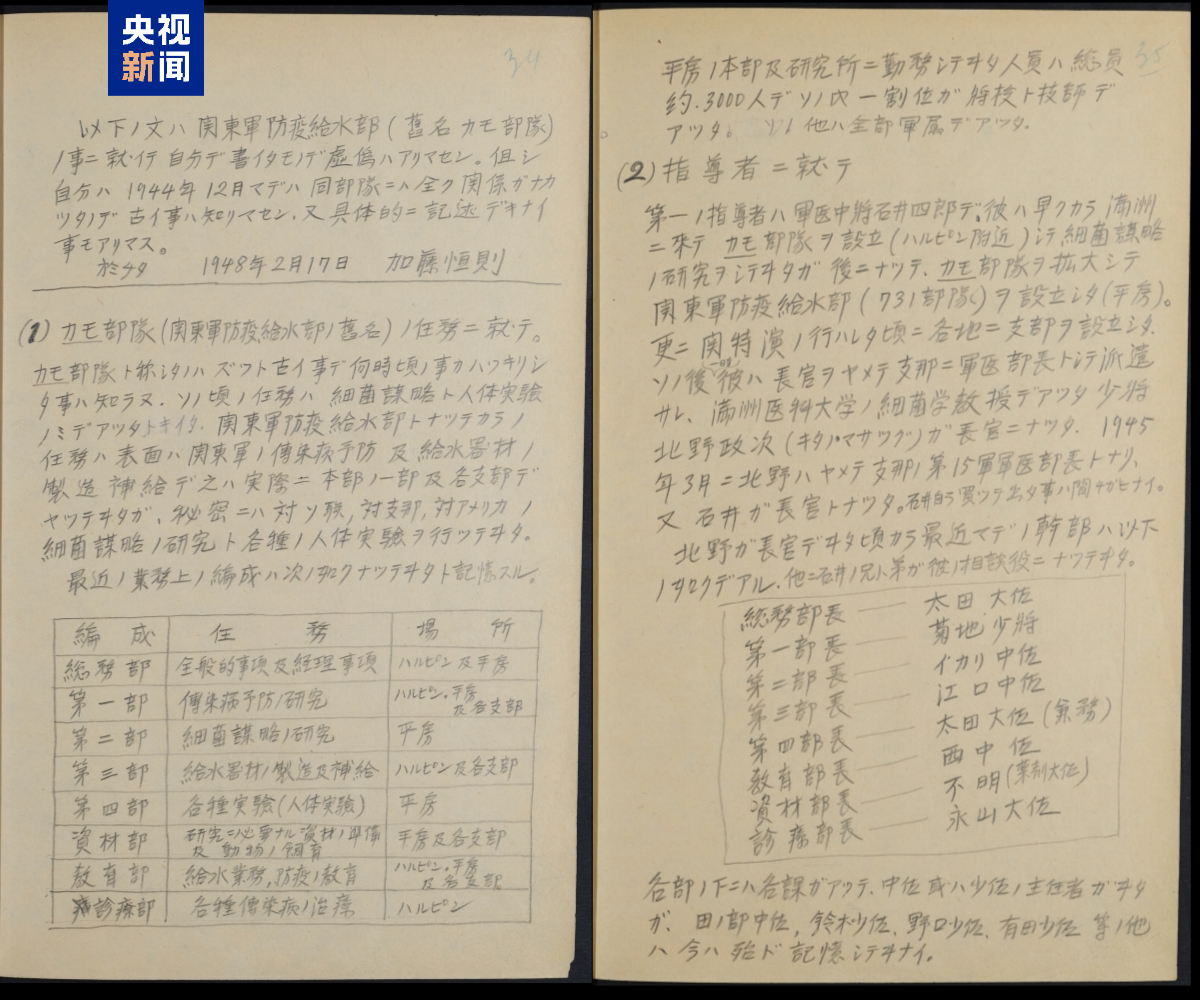 央视
新闻
34
以下ノ文ハ 関東軍防疫給水部 (舊名 カモ部隊)
ノ事ニ就イテ 自分デ書イタモノデ虚偽ハアリマセン。但シ
自分ハ 1944年12月マデハ 同部隊ニハ全ク関係ガナカ
ツタノデ 古イ事ハ知リマセン. 又具体的ニ 記述 デキナイ
事モアリマス。
於チタ 1948年2月17日 加藤恒則
(1) カモ部隊(関東軍防疫給水部ノ舊名)ノ任務ニ就テ。
カモ部隊ト称シタノハ ズツト古イ事デ何時頃ノ事カハツキリシ
タ事ハ知ラヌ. ソノ頃ノ任務ハ 細菌謀略ト人体実験
ノミデアツタトキイタ. 関東軍防疫給水部トナツテカラノ
任務ハ 表面ハ関東軍ノ傳染病予防 及 給水器材ノ
製造 補給デ之ハ実際ニ 本部ノ一部及各支部デ
ヤツテヰタガ、秘密ニハ対ソ聯, 対支那, 対アメリカノ
細菌謀略ノ研究ト各種ノ人体実験ヲ行ツテヰタ.
最近ノ業務上ノ編成ハ次ノ如クナツテヰタト記憶スル.
編成 任務 場所
総務部 全般的事項及経理事項 ハルピン及平房
第一部 傳染病予防ノ研究 ハルピン. 平房
及各支部
第二部 細菌謀略ノ研究 平房
第三部 給水器材ノ製造及補給 ハルピン及各支部
第四部 各種実験(人体実験) 平房
資材部 研究ニ必要ナル資材ノ準備
及 動物ノ飼育 平房及各支部
教育部 給水業務, 防疫ノ教育 ハルピン. 平房
及各支部
診療部 各種傳染病ノ治療 ハルピン
35
平房ノ本部及研究所ニ勤務シテヰタ人員ハ総員
約.3000人デ ソノ内 一割位ガ 将校ト技師デ
アツタ。 ソノ他ハ全部軍属デアツタ.
(2) 指導者ニ就テ
第一ノ指導者ハ軍医中将石井四郎デ、彼ハ早クカラ 満州
ニ来テ カモ部隊ヲ設立(ハルピン附近)シテ細菌謀略
ノ研究ヲシテヰタガ 後ニナツテ、カモ部隊ヲ拡大シテ
関東軍防疫給水部 (731部隊)ヲ設立シタ(平房)。
更ニ 関特演ノ行ハレタ頃ニ各地ニ支部ヲ設立シタ.
ソノ後 彼ハ 長官ヲヤメテ支那ニ軍医部長トシテ派遣
サレ、満州医科大学ノ細菌学教授デアツタ 少将
北野政次 (キタノマサツグ)ガ長官ニナツタ. 1945
年3月ニ北野ハヤメテ支那ノ第15軍軍医部長トナリ、
又 石井ガ長官トナツタ。石井自ラ買ツテ出タ事ハ間チガヒナイ。
北野ガ長官デヰタ頃カラ最近マデノ幹部ハ以下
ノ如クデアル. 他ニ石井ノ兄ト弟ガ彼ノ相談役ニナツテヰタ。
総務部長 — 太田 大佐
第一部長 — 菊地 少将
第二部長 — イカリ 中佐
第三部長 — 江口中佐
第四部長 — 太田大佐 (兼務)
教育部長 — 西中佐
資材部長 — 不明(薬剤大佐)
診療部長 — 永山大佐
各部ノ下ニハ各課ガアツテ、中佐或ハ少佐ノ主任者ガヰタ
ガ、田ノ部中佐, 鈴木少佐、野口少佐、有田少佐 等ノ他
ハ今ハ殆ド記憶シテヰナイ。